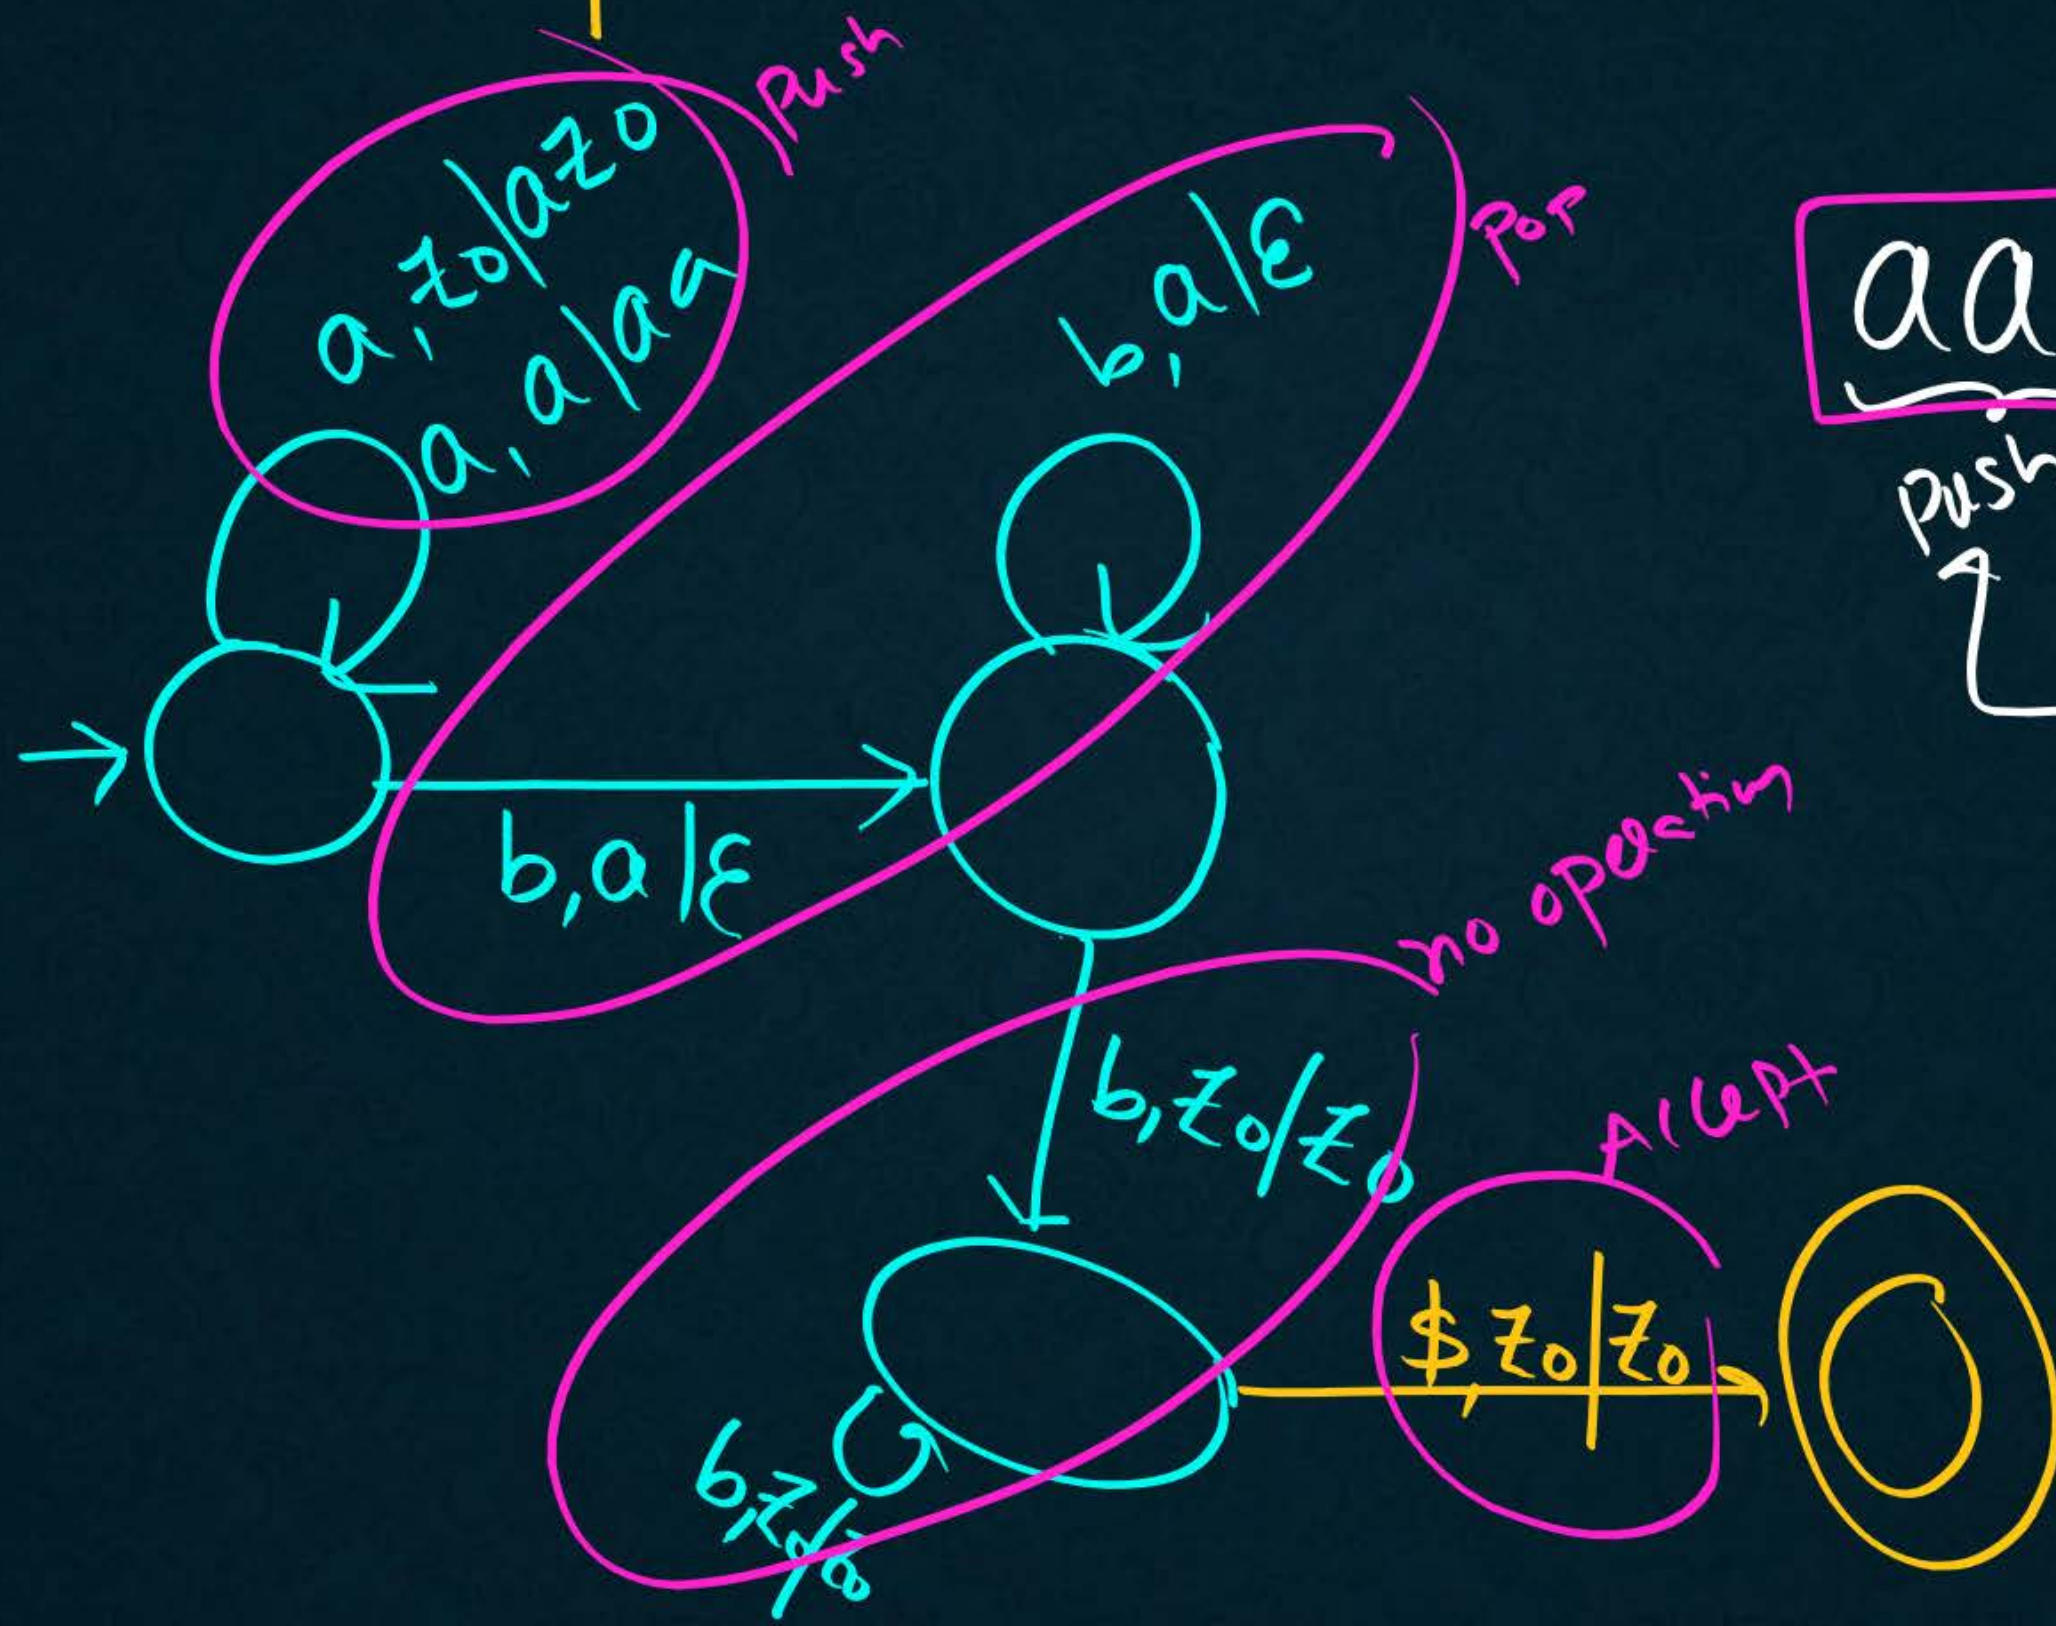 push
a, z0/az0
a, a/aa
b, a/ε
pop
aa
push
b, a/ε
no operation
b, z0/z0
Accept
$, z0/z0
b, z0/z0